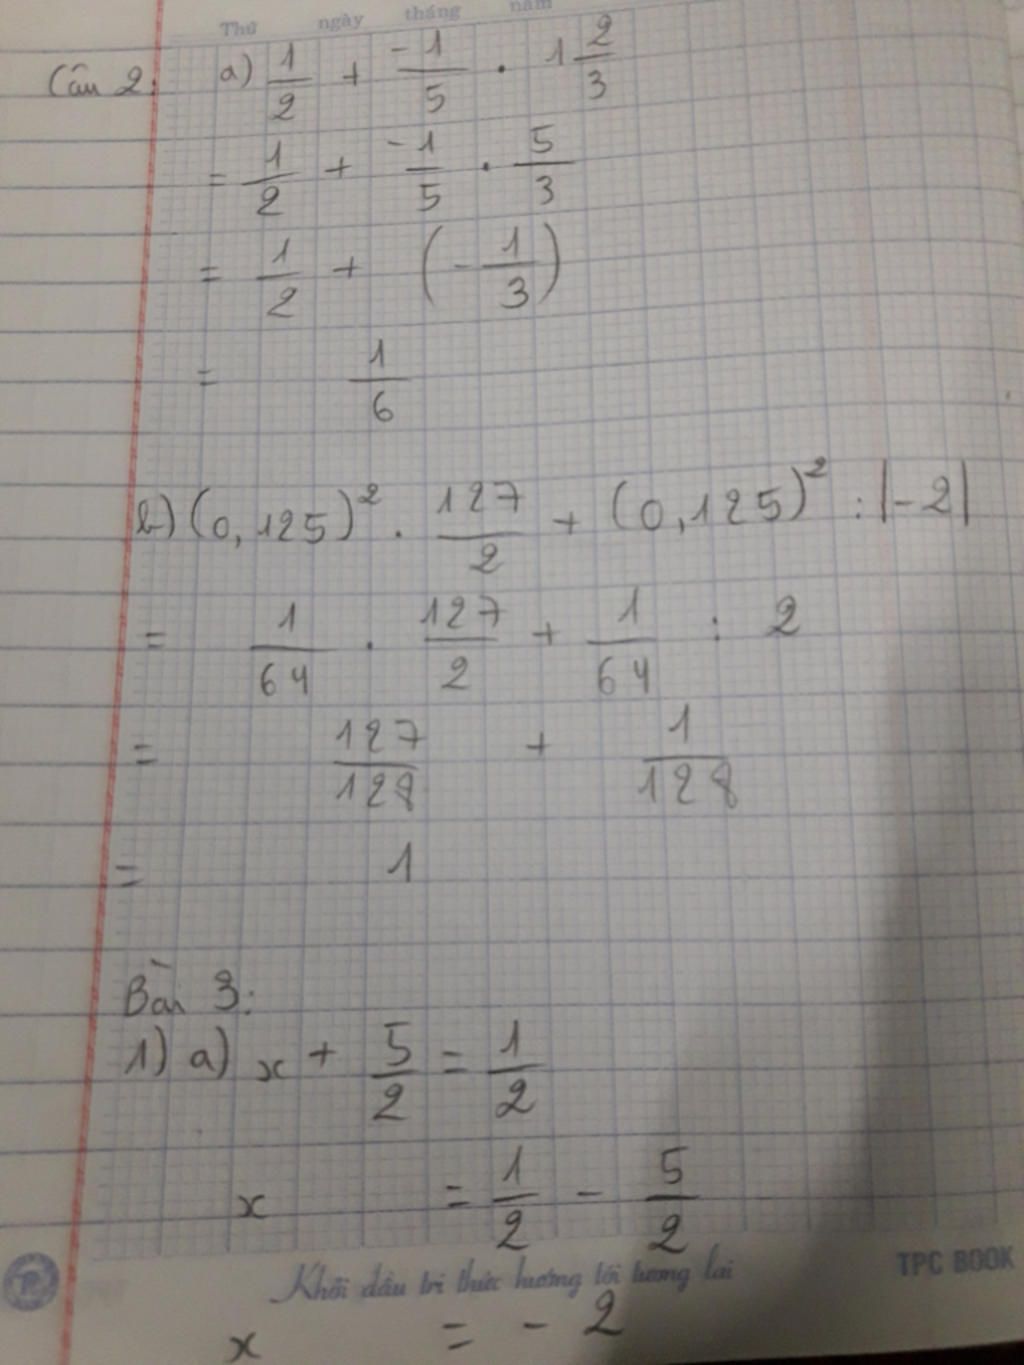 Thứ ngày tháng năm
Câu 2: a) 1/2 + -1/5 . 1 2/3
= 1/2 + -1/5 . 5/3
= 1/2 + (-1/3)
= 1/6
b) (0,125)² . 127/2 + (0,125)² : |-2|
= 1/64 . 127/2 + 1/64 : 2
= 127/128 + 1/128
= 1
Bài 3:
1) a) x + 5/2 = 1/2
x = 1/2 - 5/2
Khởi đầu tri thức hướng tới tương lai TPC BOOK
x = - 2